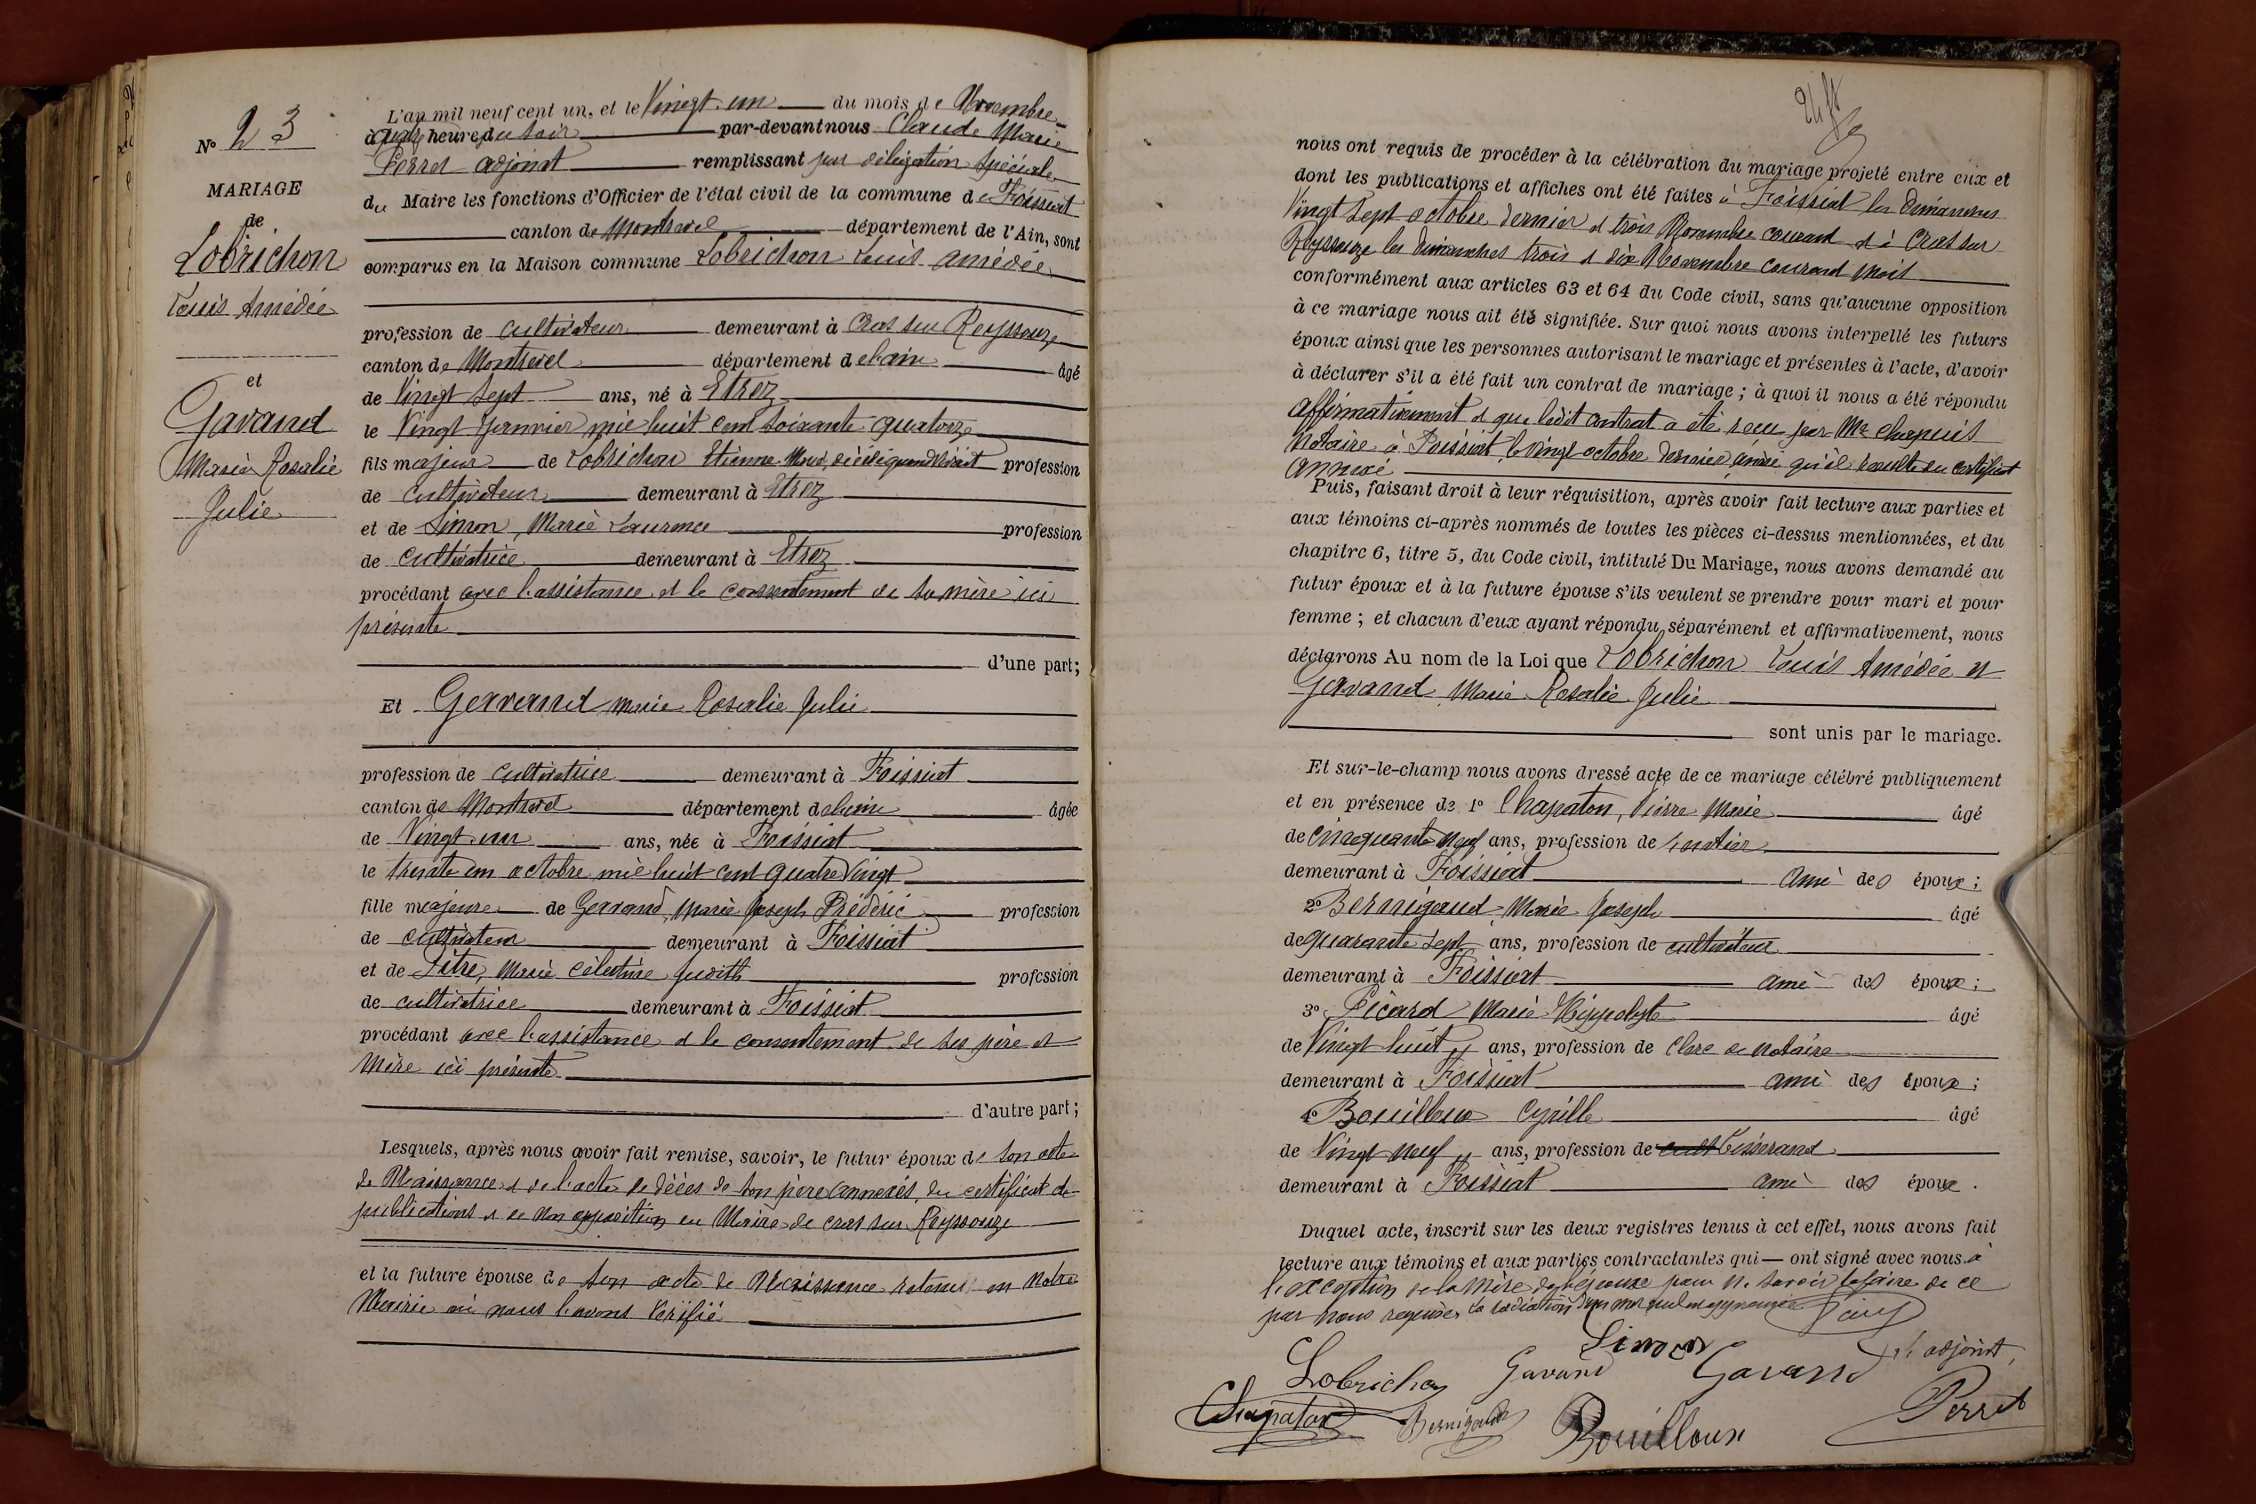 Nº 23
MARIAGE
de
Lobrichon
Louis Amédée
et
Gavand
Marie Rosalie
Julie
L'an mil neuf cent un, et le Vingt-un du mois de Novembre
à quatre heures du soir par-devant nous Claude Marie
Perret adjoint remplissant par délégation spéciale
du Maire les fonctions d'Officier de l'état civil de la commune de Foissiat
canton de Montrevel département de l'Ain, sont
comparus en la Maison commune Lobrichon Louis Amédée
profession de cultivateur demeurant à Cras sur Reyssouze
canton de Montrevel département de l'ain âgé
de Vingt Sept ans, né à Etrez
le Vingt Janvier mil huit cent soixante quatorze
fils majeur de Lobrichon Etienne Marie, décédé quand vivait profession
de cultivateur demeurant à Etrez
et de Simon, Marie Laurence profession
de cultivatrice demeurant à Etrez
procédant avec l'assistance et le consentement de sa mère ici
présente
d'une part;
Et Gavand Marie Rosalie Julie
profession de cultivatrice demeurant à Foissiat
canton de Montrevel département de l'ain âgée
de Vingt-un ans, née à Foissiat
le trente un octobre mil huit cent quatre Vingt
fille majeure de Gavand, Marie Joseph Frédéric profession
de cultivateur demeurant à Foissiat
et de Pitre, Marie Célestine Judith profession
de cultivatrice demeurant à Foissiat
procédant avec l'assistance et le consentement de ses père et
Mère ici présents
d'autre part;
Lesquels, après nous avoir fait remise, savoir, le futur époux de son acte
de Naissance et de l'acte de décès de son père annexés, du certificat de
publications et de non opposition en Mairie de cras sur Reyssouze
et la future épouse de son acte de Naissance retenu en notre
Mairie où nous l'avons Vérifié
nous ont requis de procéder à la célébration du mariage projeté entre eux et
dont les publications et affiches ont été faites à Foissiat les dimanches
Vingt Sept octobre dernier et trois Novembre courant et à Cras sur
Reyssouze les dimanches trois et dix Novembre courant mois
conformément aux articles 63 et 64 du Code civil, sans qu'aucune opposition
à ce mariage nous ait été signifiée. Sur quoi nous avons interpellé les futurs
époux ainsi que les personnes autorisant le mariage et présentes à l'acte, d'avoir
à déclarer s'il a été fait un contrat de mariage; à quoi il nous a été répondu
affirmativement et que ledit contrat a été reçu par Me Chapuis
Notaire à Foissiat, le vingt octobre dernier ainsi qu'il résulte du certificat
annexé
Puis, faisant droit à leur réquisition, après avoir fait lecture aux parties et
aux témoins ci-après nommés de toutes les pièces ci-dessus mentionnées, et du
chapitre 6, titre 5, du Code civil, intitulé Du Mariage, nous avons demandé au
futur époux et à la future épouse s'ils veulent se prendre pour mari et pour
femme; et chacun d'eux ayant répondu séparément et affirmativement, nous
déclarons Au nom de la Loi que Lobrichon Louis Amédée et
Gavand Marie Rosalie Julie
sont unis par le mariage.
Et sur-le-champ nous avons dressé acte de ce mariage célébré publiquement
et en présence de 1º Chapaton, Pierre Marie âgé
de cinquante neuf ans, profession de
demeurant à Foissiat ami des époux;
2º Bernigaud, Marie Joseph âgé
de quarante sept ans, profession de cultivateur
demeurant à Foissiat ami des époux;
3º Picard Marie Hippolyte âgé
de Vingt huit ans, profession de clerc de notaire
demeurant à Foissiat ami des époux;
4º Bouilloux Cyrille âgé
de Vingt neuf ans, profession de cult Tisserand
demeurant à Foissiat ami des époux.
Duquel acte, inscrit sur les deux registres tenus à cet effet, nous avons fait
lecture aux témoins et aux parties contractantes qui ont signé avec nous à
l'exception de la Mère de l'épouse pour ne savoir le faire de ce
par nous requise. La radiation d'un mot nul
Simon l'adjoint,
Lobrichon Gavand Gavand
Chapaton Bernigaud Bouilloux Perret